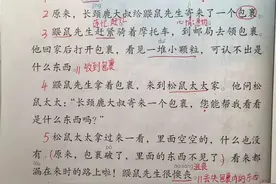 2 原来,长颈鹿大叔给鼹鼠先生寄来了一个包裹。
3 鼹鼠先生赶紧骑着摩托车,到邮局去领包裹。
他回家后打开包裹,看见一堆小颗粒,可认不出是
什么东西。 收到包裹
4 鼹鼠先生拿着包裹,来到松鼠太太家。他问松
鼠太太:“长颈鹿大叔寄来一个包裹,您能帮我看看
是什么东西吗?”
5 松鼠太太拿过来一看,里面空空的,什么也没
有。原来,包裹破了,里面的东西不见了,看来都
漏在来时的路上啦!鼹鼠先生很懊丧